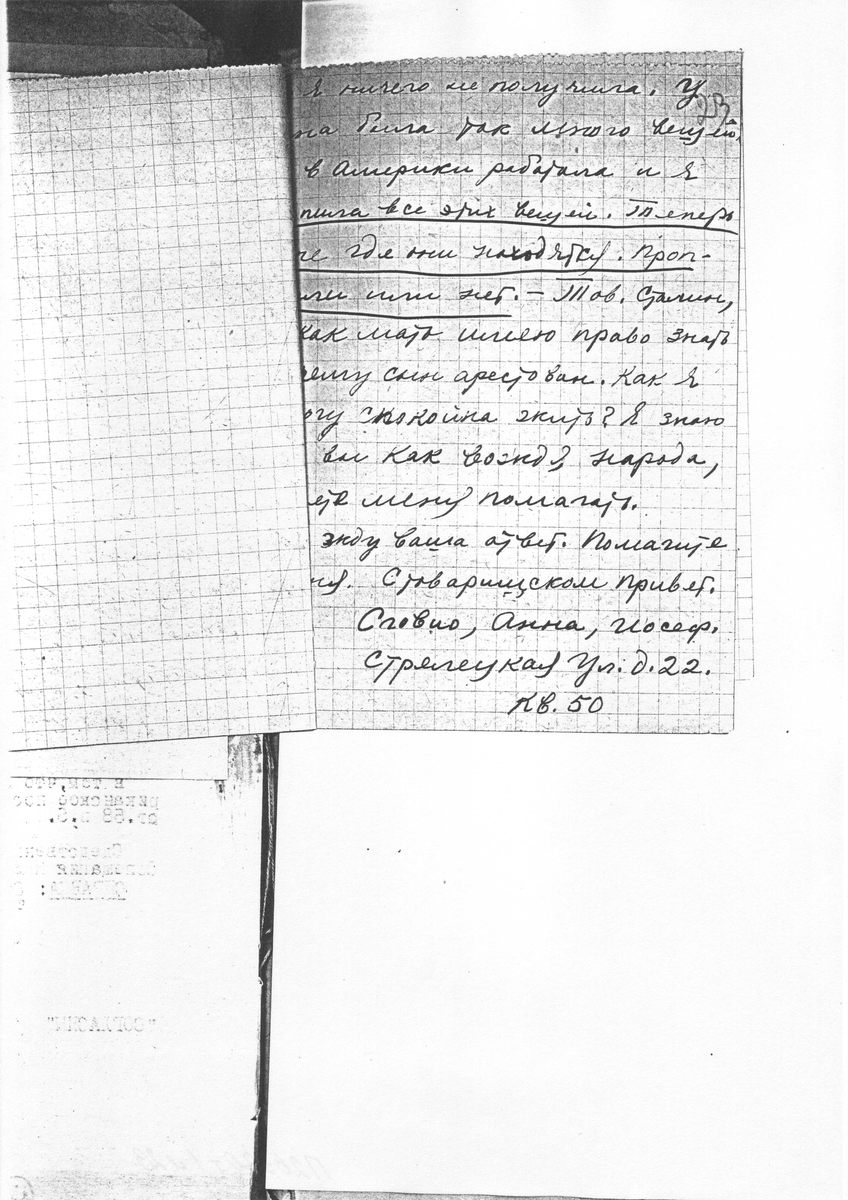 Я ничего не получила. У
23
на была так много вещей,
в Америки работала и я
пила все этих вещей. Теперь
где они находятся. Проп-
ли или нет. – Тов. Сталин,
как мать имею право знать
чему сын арестован. Как я
огу спокойна жить? Я знаю
вы как вождя народа,
ете меня помагать.
жду ваша ответ. Помагите
ня. Стоварищском привет.
Сговио, Анна, Иосеф.
Стрелецкая Ул. д. 22.
Кв. 50
в том, что
риканской пос
ст. 58 п. 6.
Следствен
СПРАВКА:
"СОГЛАСЕН"